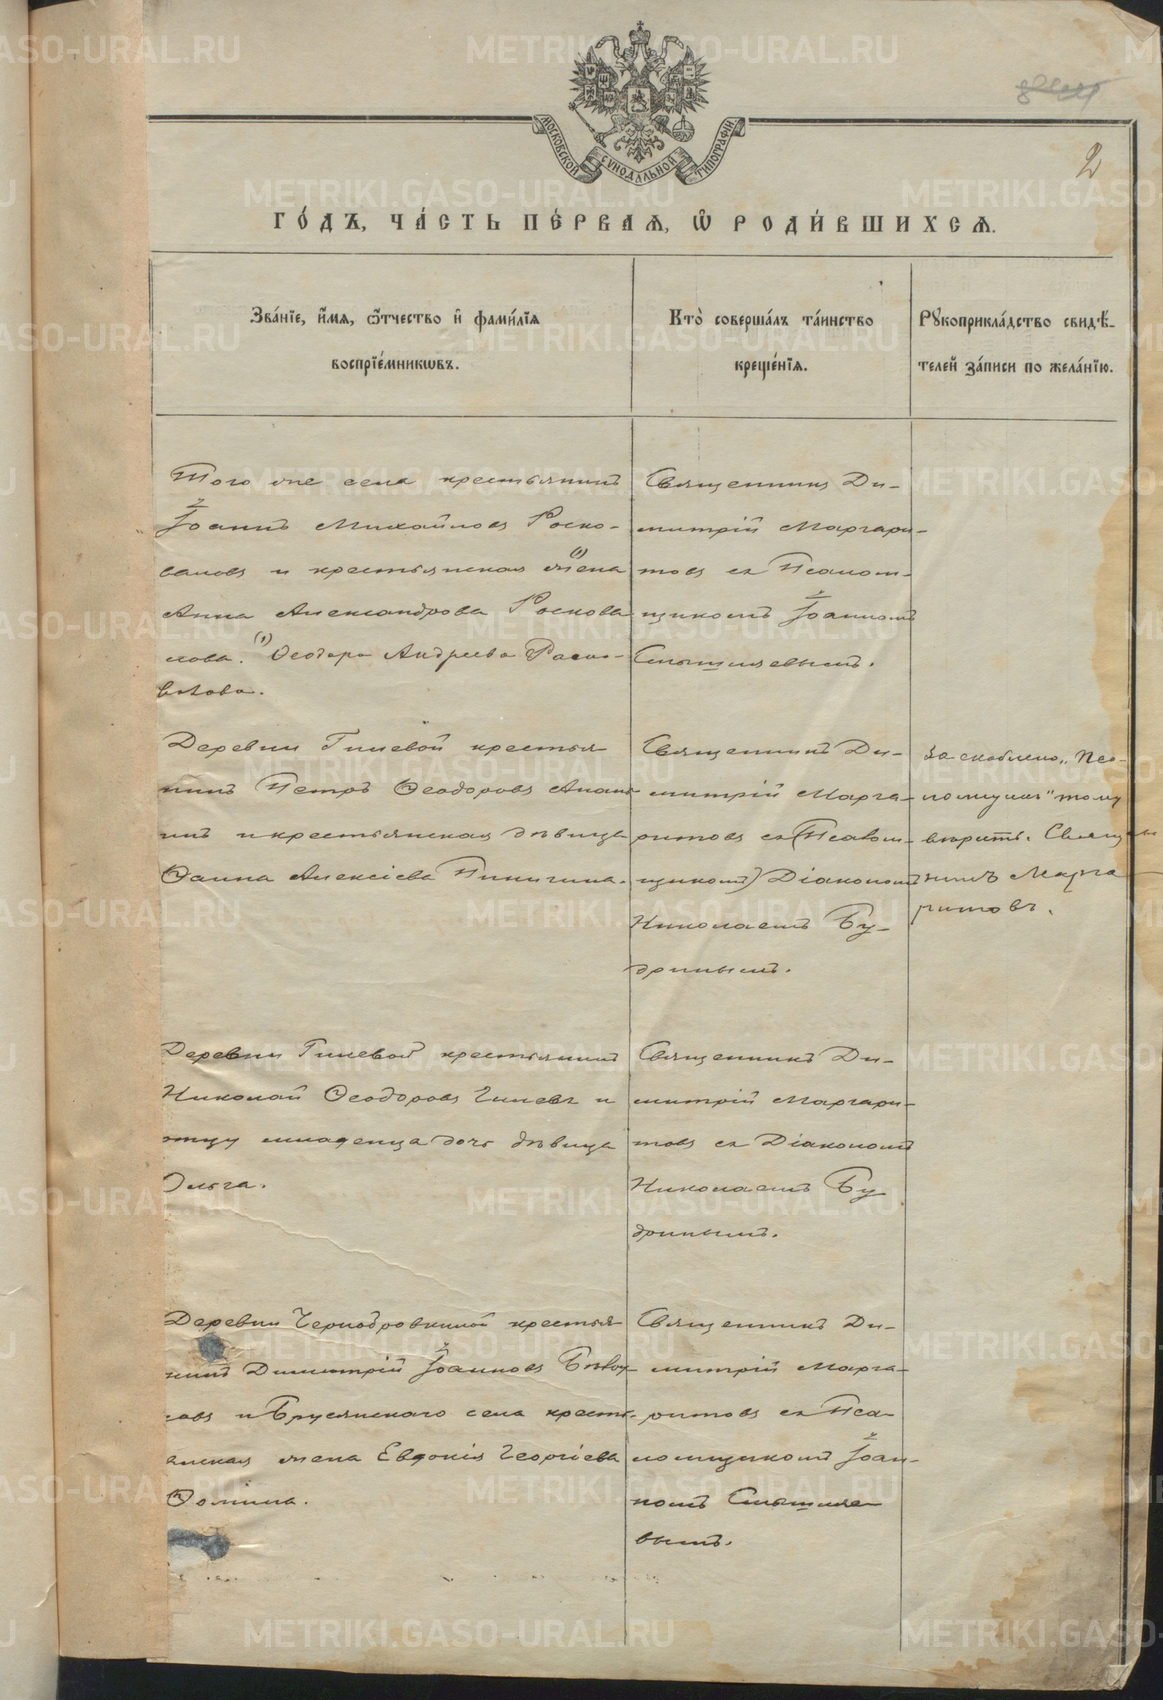 МОСКОВСКОЙ СУНОДАЛЬНОЙ ТИПОГРАФИИ
2
ГО́ДЪ, ЧА́СТЬ ПЕ́РВАѦ, Ѡ҆ РОДИ́ВШИХСѦ.
Зва́нїе, и҆́мѧ, ѻ҆́тчество и҆ фами́лїѧ
воспрїе́мникѡвъ.
Кто̀ соверша́лъ та́инство
креще́нїѧ.
Рꙋкоприкла́дство свидѣ́-
телей за́писи по жела́нїю.
Того же села крестьянинъ
Іоаннъ Михайловъ Роско-
валовъ и крестьянская жена (1)
Анна Александрова Роскова
лова. (1) Ѳеодора Андреева Раско-
валова.
Священникъ Ди-
митрій Маргари-
товъ съ Псалом-
щикомъ Іоанномъ
Смышляевымъ.
Деревни Гилевой крестья
нинъ Петръ Ѳеодоровъ
и крестьянская дѣвица
Ѳаина Алексіева
Священникъ Ди-
митрій Марга-
ритовъ съ (Псалом-
щикомъ) Діакономъ
Николаемъ Бу-
дринымъ.
За скоблено „Пса-
ломщикъ" тому
вѣрить. Священ
никъ Марга
ритовъ.
Деревни Гилевой крестьянинъ
Николай Ѳеодоровъ Гилевъ и
отцу младенца дочь дѣвица
Ольга.
Священникъ Ди-
митрій Маргари-
товъ съ Діакономъ
Николаемъ Бу
дринымъ.
Деревни Чернобровкиной крестья
нинъ Димитрій Іоанновъ Бѣлоу
совъ и Брусянского села кресть-
янская жена Евдокія Георгіева
Ѳомина.
Священникъ Ди-
митрій Марга-
ритовъ съ Пса-
ломщикомъ Іоан-
номъ Смышляе
вымъ.
METRIKI.GASO-URAL.RU